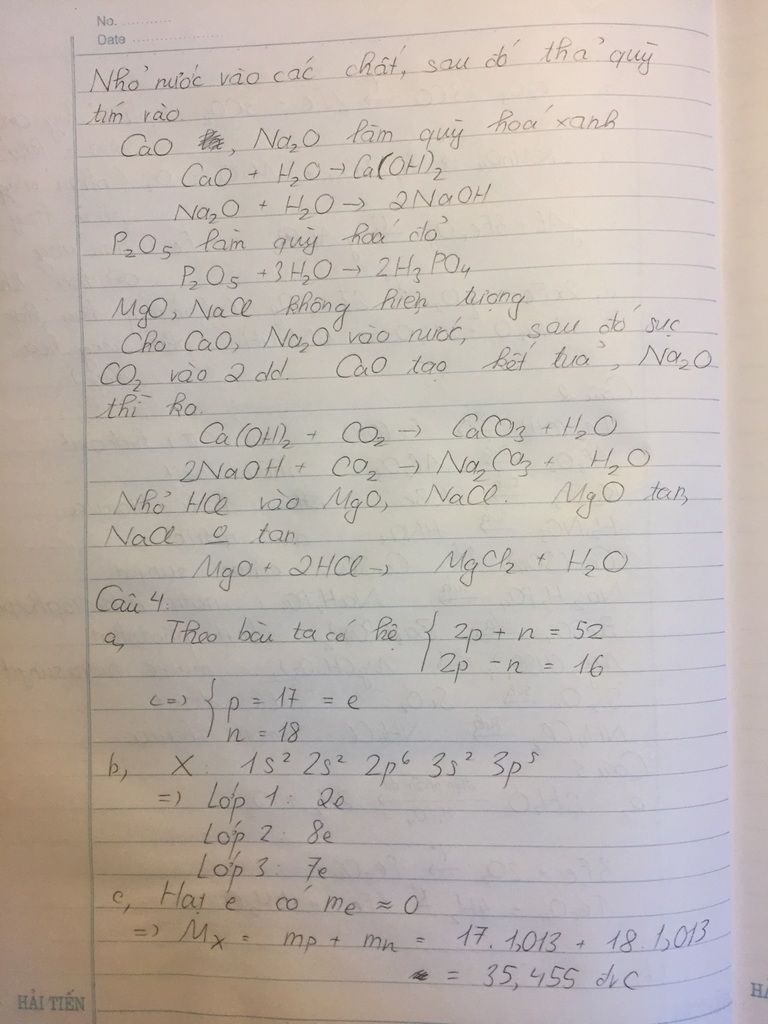 No. ............
Date .....................
Nhỏ nước vào các chất, sau đó thả quỳ
tím vào
CaO, Na₂O làm quỳ hoá xanh
CaO + H₂O → Ca(OH)₂
Na₂O + H₂O → 2NaOH
P₂O₅ làm quỳ hoá đỏ
P₂O₅ + 3H₂O → 2H₃PO₄
MgO, NaCl không hiện tượng
Cho CaO, Na₂O vào nước, sau đó sục
CO₂ vào 2 dd. CaO tạo kết tủa, Na₂O
thì ko.
Ca(OH)₂ + CO₂ → CaCO₃ + H₂O
2NaOH + CO₂ → Na₂CO₃ + H₂O
Nhỏ HCl vào MgO, NaCl. MgO tan,
NaCl o tan
MgO + 2HCl → MgCl₂ + H₂O
Câu 4:
a, Theo bài ta có hệ { 2p + n = 52
2p - n = 16
<=> { p = 17 = e
n = 18
b, X: 1s² 2s² 2p⁶ 3s² 3p⁵
=> Lớp 1: 2e
Lớp 2: 8e
Lớp 3: 7e
c, Hạt e có me ≈ 0
=> Mx = mp + mn = 17.1,013 + 18.1,013
= 35,455 đvC
HẢI TIẾN